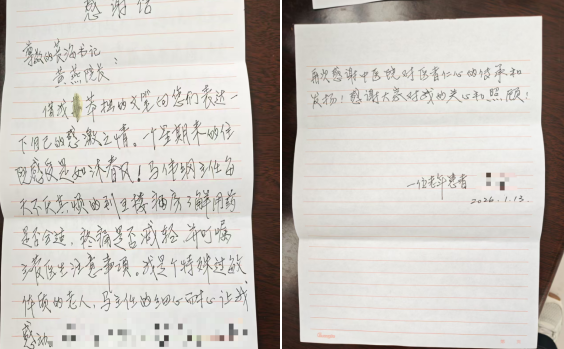 感谢信
尊敬的黄海书记
黄燕院长：
借我笨拙的文笔向您们表达一
下自己的感激之情。一个星期来的住
院感受是如沐春风！马伟明主任每
天不厌其烦的到
房了解用药
是否合适，疼痛是否减轻并叮嘱
注意事项。我是个特殊过敏
体质的老人，马主任的细心耐心让我
感动。
再次感谢中医院对医者仁心的传承和
发扬！感谢大家对我的关心和照顾！
一位老年患者
2026.1.13.